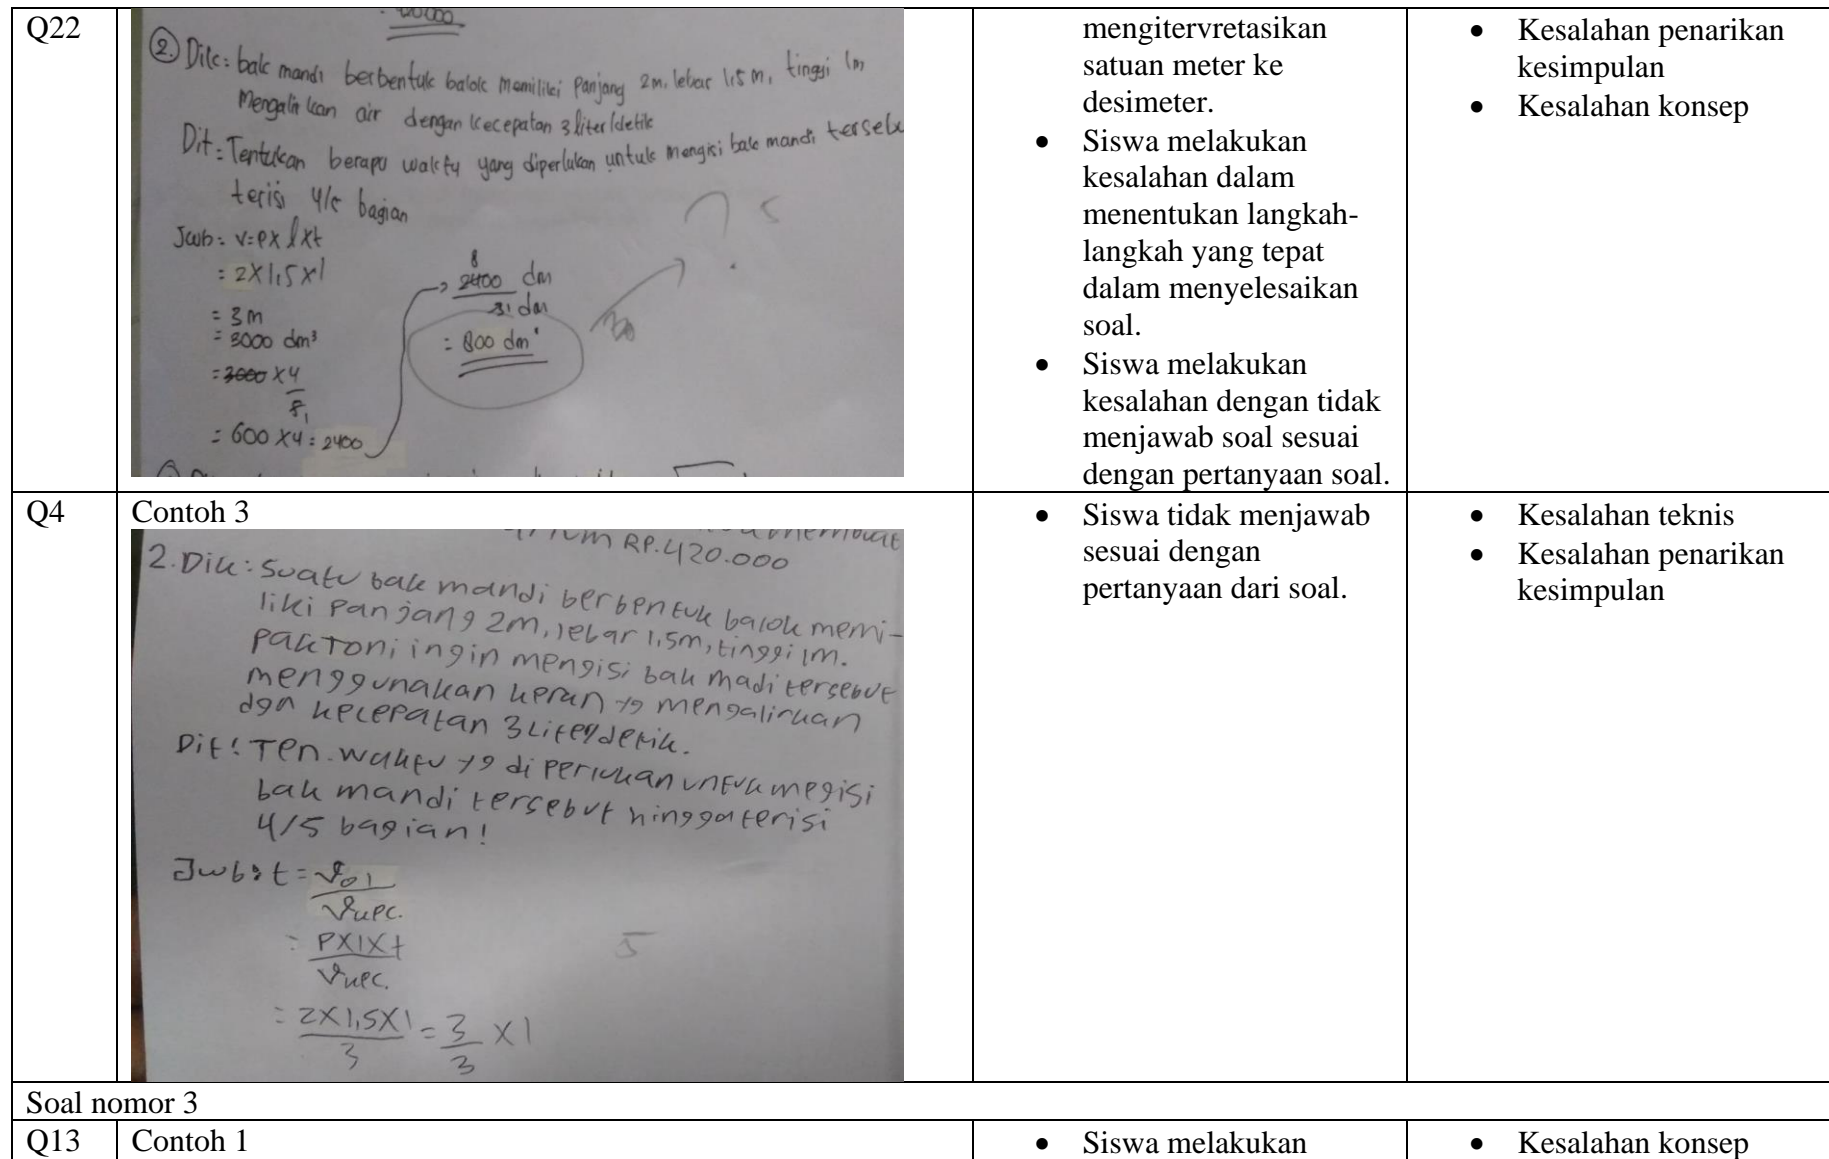 Q22
20000
② Dik: bak mandi berbentuk balok memiliki panjang 2m, lebar 1,5 m, tinggi 1m
Mengalirkan air dengan kecepatan 3 liter/detik
Dit: Tentukan berapa waktu yang diperlukan untuk mengisi bak mandi terseb
terisi 4/5 bagian
Jwb: v=px lxt
= 2x1,5x1
= 3m
= 3000 dm³
= 3000 x 4
5 1
= 600 x4 = 2400
8
2400 dm
3 1 dm
= 800 dm
?
mengitervretasikan
satuan meter ke
desimeter.
• Siswa melakukan
kesalahan dalam
menentukan langkah-
langkah yang tepat
dalam menyelesaikan
soal.
• Siswa melakukan
kesalahan dengan tidak
menjawab soal sesuai
dengan pertanyaan soal.
• Kesalahan penarikan
kesimpulan
• Kesalahan konsep
Q4
Contoh 3
RP.420.000
2. Dik: Suatu bak mandi berbentuk balok memi-
liki panjang 2m, lebar 1,5m, tinggi 1m.
Pak Toni ingin mengisi bak madi tersebut
menggunakan keran yg mengalirkan
dgn kecepatan 3 Liter/detik.
Dit! Ten. waktu yg di perlukan untuk megisi
bak mandi tersebut hingga terisi
4/5 bagian!
Jwb: t = Vol
Vkec.
= PXlXt
Vkec.
= 2X1,5X1 = 3 X 1
3 3
5
• Siswa tidak menjawab
sesuai dengan
pertanyaan dari soal.
• Kesalahan teknis
• Kesalahan penarikan
kesimpulan
Soal nomor 3
Q13
Contoh 1
• Siswa melakukan
• Kesalahan konsep